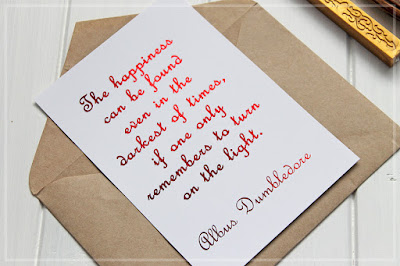 The happiness
can be found
even in the
darkest of times,
if one only
remembers to turn
on the light.
Albus Dumbledore